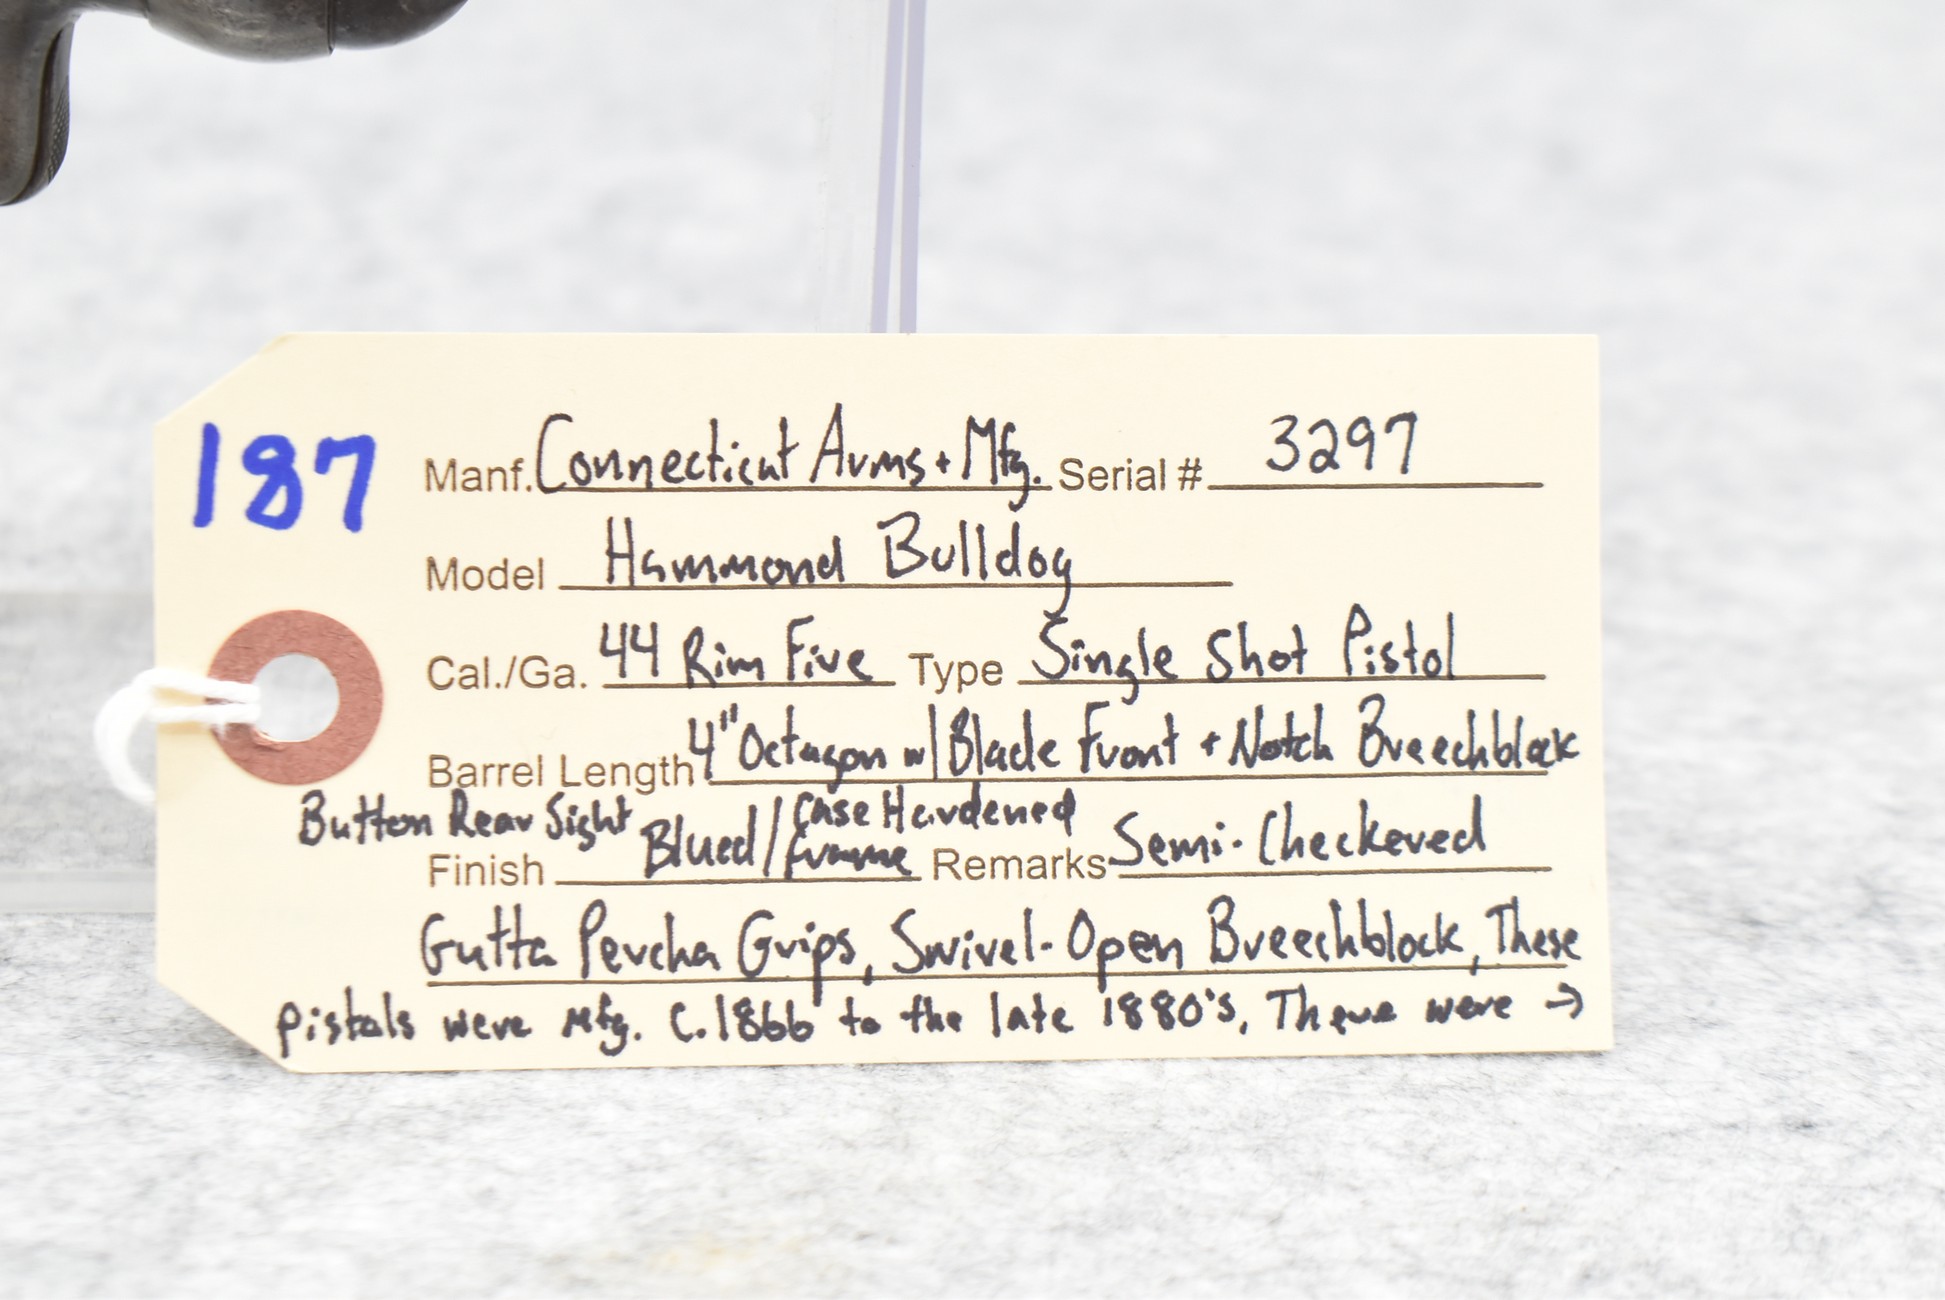 187
Manf. Connecticut Arms + Mfg. Serial # 3297
Model Hammond Bulldog
Cal./Ga. 44 Rim Fire Type Single Shot Pistol
Barrel Length 4" Octagon w/ Blade Front + Notch Breechblock
Button Rear Sight
Finish Blued / Case Hardened frame Remarks Semi-Checkered
Gutta Percha Grips, Swivel-Open Breechblock, These
pistols were mfg. C.1866 to the late 1880's. There were →